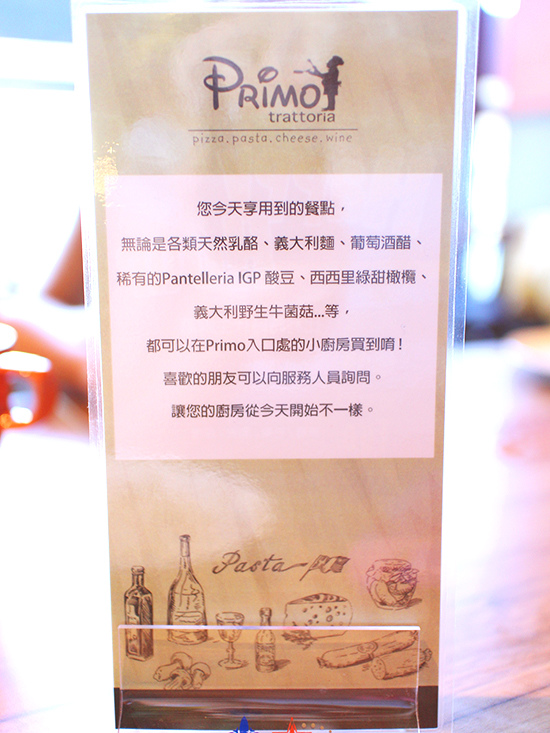 PRIMO
trattoria
pizza.pasta.cheese.wine
您今天享用到的餐點，
無論是各類天然乳酪、義大利麵、葡萄酒醋、
稀有的Pantelleria IGP 酸豆、西西里綠甜橄欖、
義大利野生牛菌菇...等，
都可以在Primo入口處的小廚房買到唷！
喜歡的朋友可以向服務人員詢問。
讓您的廚房從今天開始不一樣。
Pasta